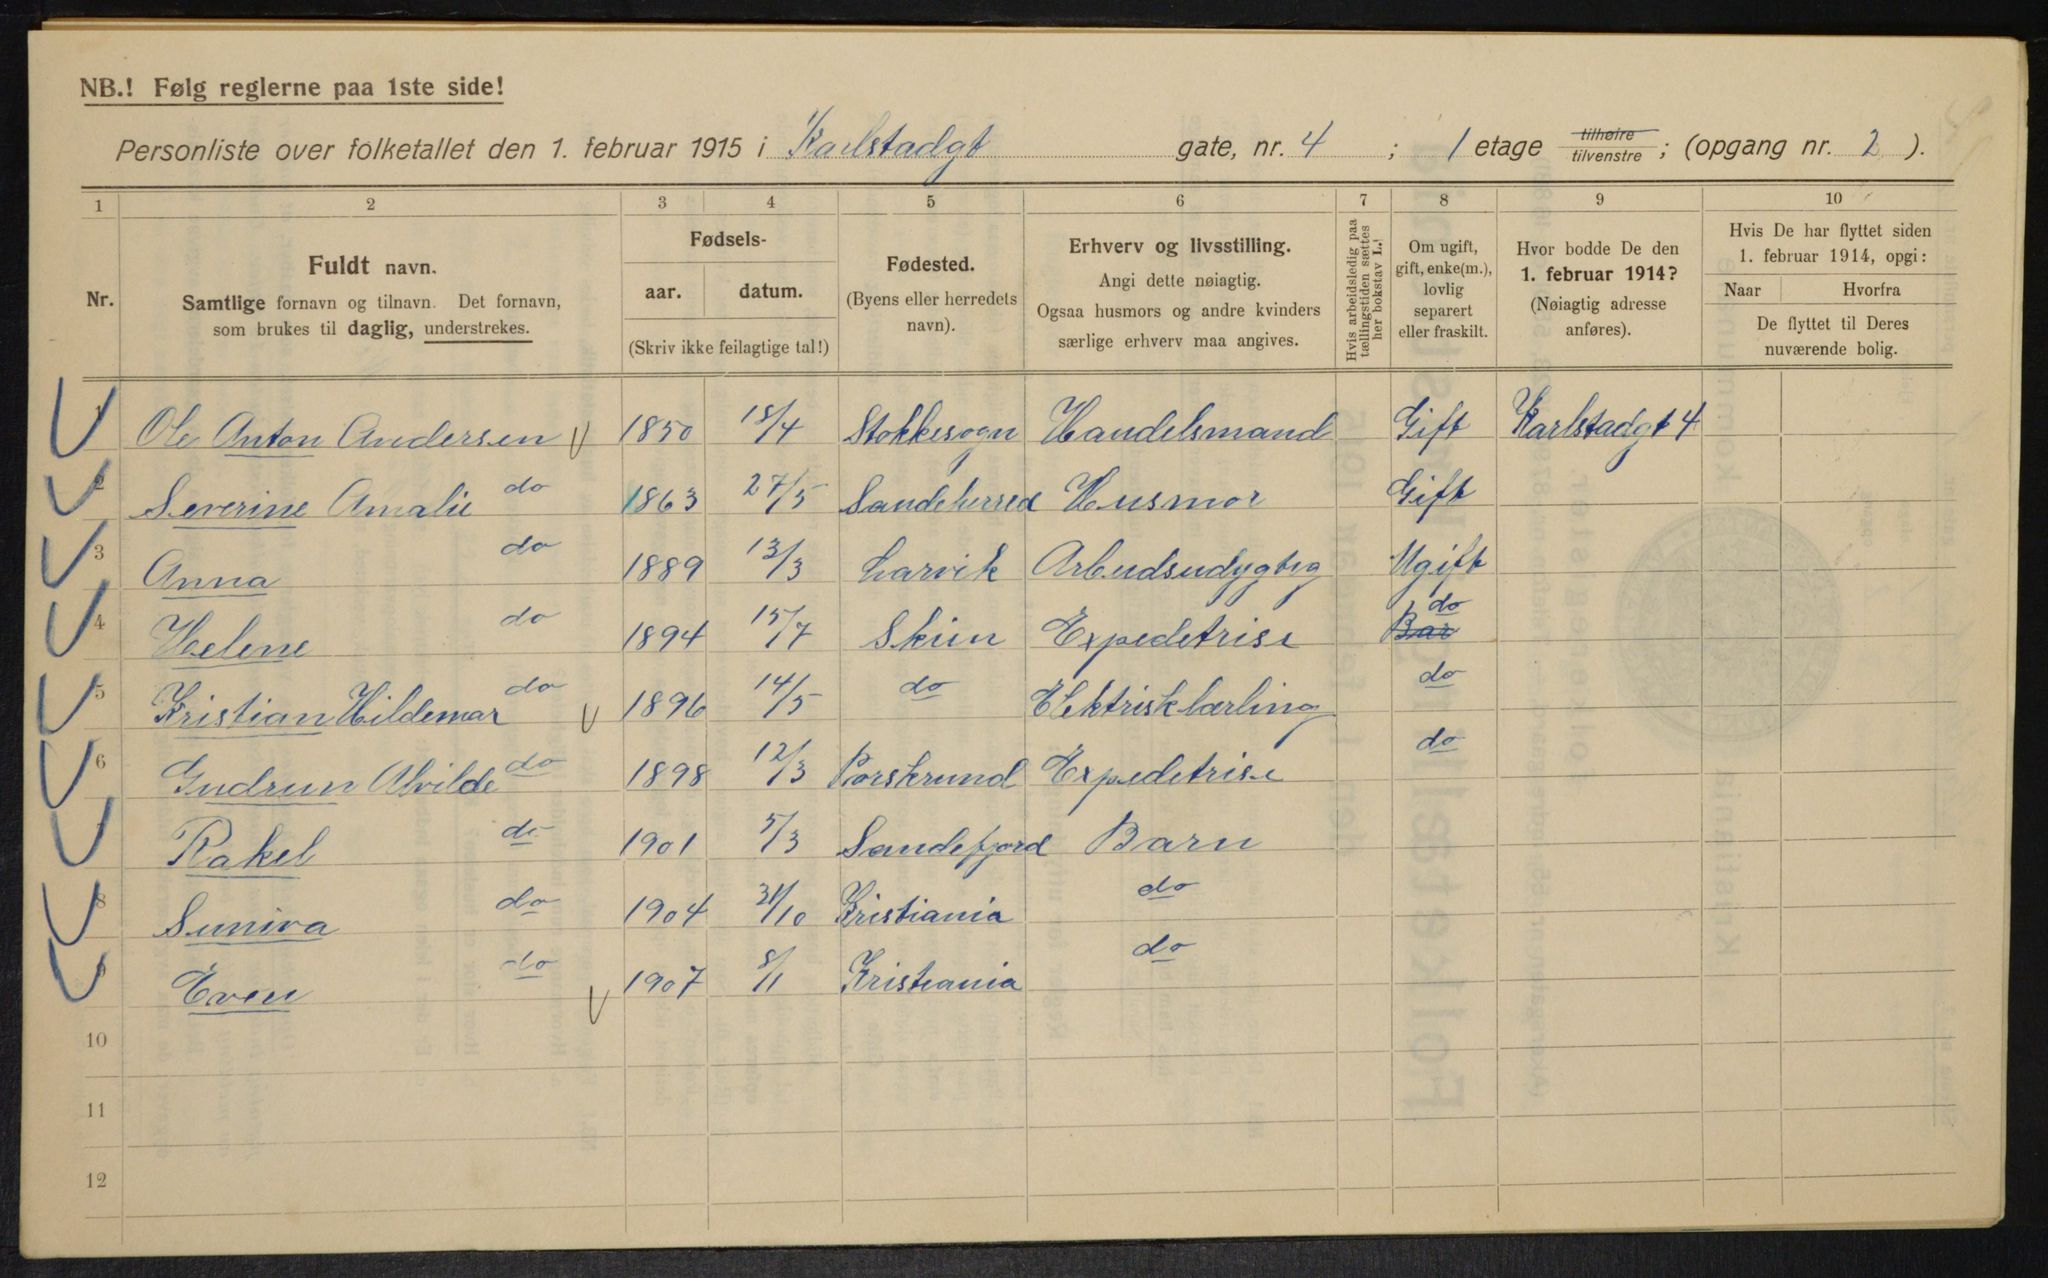 NB.! Følg reglerne paa 1ste side!
Personliste over folketallet den 1. februar 1915 i Karlstadgt gate, nr. 4 ; 1 etage tilhøire tilvenstre ; (opgang nr. 2 ).
1 2 3 4 5 6 7 8 9 10
Nr.
Fuldt navn.
Samtlige fornavn og tilnavn. Det fornavn,
som brukes til daglig, understrekes.
Fødsels-
aar. datum.
(Skriv ikke feilagtige tal!)
Fødested.
(Byens eller herredets
navn).
Erhverv og livsstilling.
Angi dette nøiagtig.
Ogsaa husmors og andre kvinders
særlige erhverv maa angives.
Hvis arbeidsledig paa
tællingstiden sættes
her bokstav L.!
Om ugift,
gift, enke(m.),
lovlig
separert
eller fraskilt.
Hvor bodde De den
1. februar 1914?
(Nøiagtig adresse
anføres).
Hvis De har flyttet siden
1. februar 1914, opgi:
Naar Hvorfra
De flyttet til Deres
nuværende bolig.
1 Ole Anton Andersen 1850 18/4 Stokkesogn Handelsmand Gift Karlstadgt 4
2 Severine Amalie do 1863 27/5 Sandeherred Husmor Gift
3 Anna do 1889 13/3 Larvik Arbeidsudygtig Ugift
4 Helene do 1894 15/7 Skien Expedetrise Bar do
5 Kristian Hildemar do 1896 14/5 do Elektrisklærling do
6 Gudrun Alvilde do 1898 12/3 Porskrund Expedetrise do
7 Rakel do 1901 5/3 Sandefjord Barn
8 Suniva do 1904 /10 Kristiania do
9 Even do 1907 8/1 Kristiania do
10
11
12